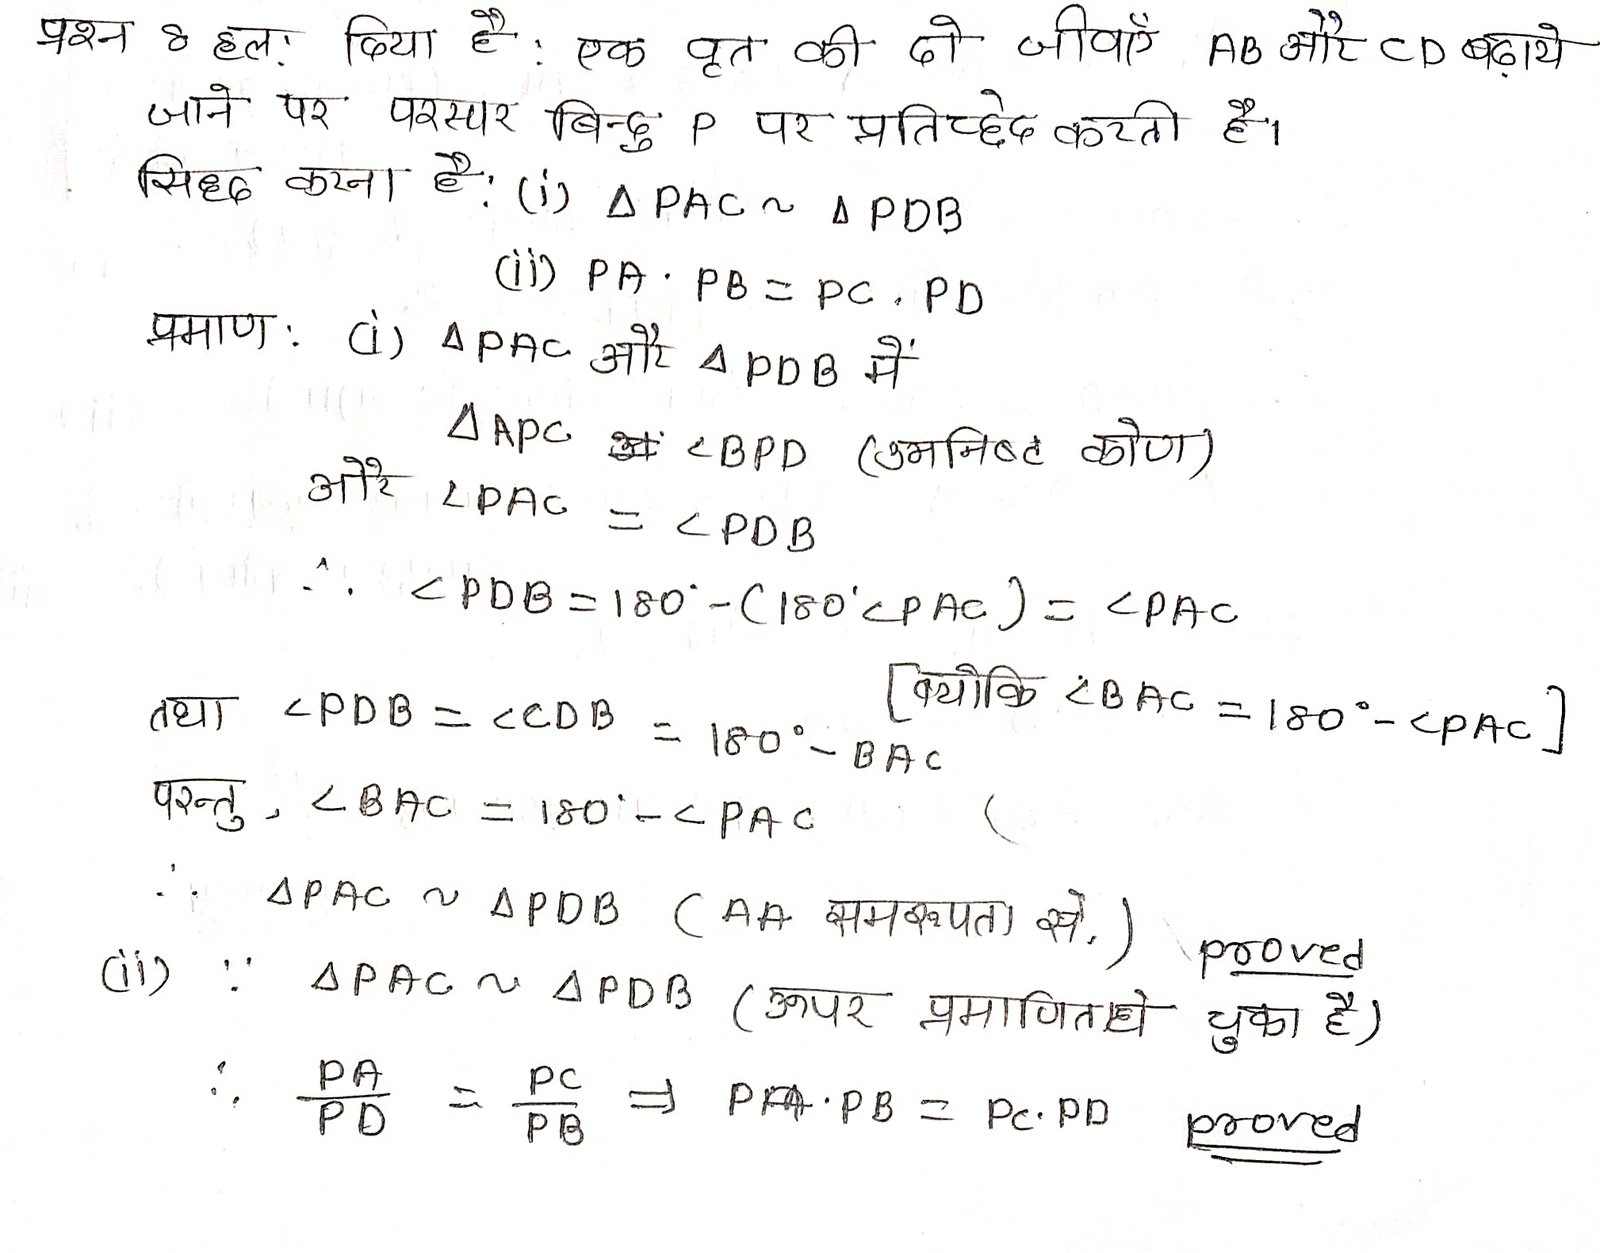 प्रश्न 8 हल: दिया है: एक वृत की दो जीवाएँ AB और CD बढ़ाये
जाने पर परस्पर बिन्दु P पर प्रतिच्छेद करती है।
सिद्ध करना है: (i) Δ PAC ~ Δ PDB
(ii) PA · PB = PC . PD
प्रमाण: (i) Δ PAC और Δ PDB में
Δ APC <BPD (उभनिष्ट कोण)
और ∠PAC = <PDB
∴ <PDB = 180° - (180° <PAC) = <PAC
[क्योकि <BAC = 180° - <PAC]
तथा <PDB = <CDB = 180° - BAC
परन्तु, <BAC = 180° - < PAC (
∴ ΔPAC ~ ΔPDB ( AA समरूपता से.) proved
(ii) ∵ ΔPAC ~ ΔPDB (ऊपर प्रमाणित हो चुका है)
∴ PA/PD = PC/PB ⇒ PA·PB = PC·PD proved